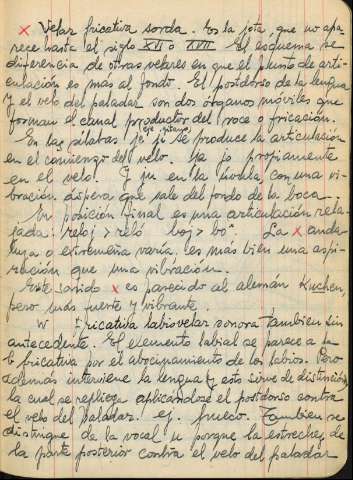 x Velar fricativa sorda. Es la jota, que no apa-
rece hasta el siglo XVI o XVII. El esquema se
diferencia de otras velares en que el punto de arti-
culación es más al fondo. El postdorso de la lengua
y el velo del paladar son dos órganos móviles que
forman el canal productor del roce o fricación.
En las sílabas je ji se produce la articulación
(eje, gitano)
en el comienzo del velo. ja jo propiamente
en el velo. Y ju en la úvula, con una vi-
bración áspera que sale del fondo de la boca.
En posición final es una articulación rela-
jada: reloj > reló boj > bo. La x anda-
luza o extremeña varía, es más bien una aspi-
ración que una vibración.
Este sonido x es parecido al alemán Kuchen,
pero más fuerte y vibrante.
w Fricativa labiovelar sonora también sin
antecedente. El elemento labial se parece a la
b fricativa por el abocinamiento de los labios. Pero
además interviene la lengua y esto sirve de distinción
la cual se repliega aplicándose el postdorso contra
el velo del paladar. ej. hueco. También se
distingue de la vocal u porque la estrechez de
la parte posterior contra el velo del paladar